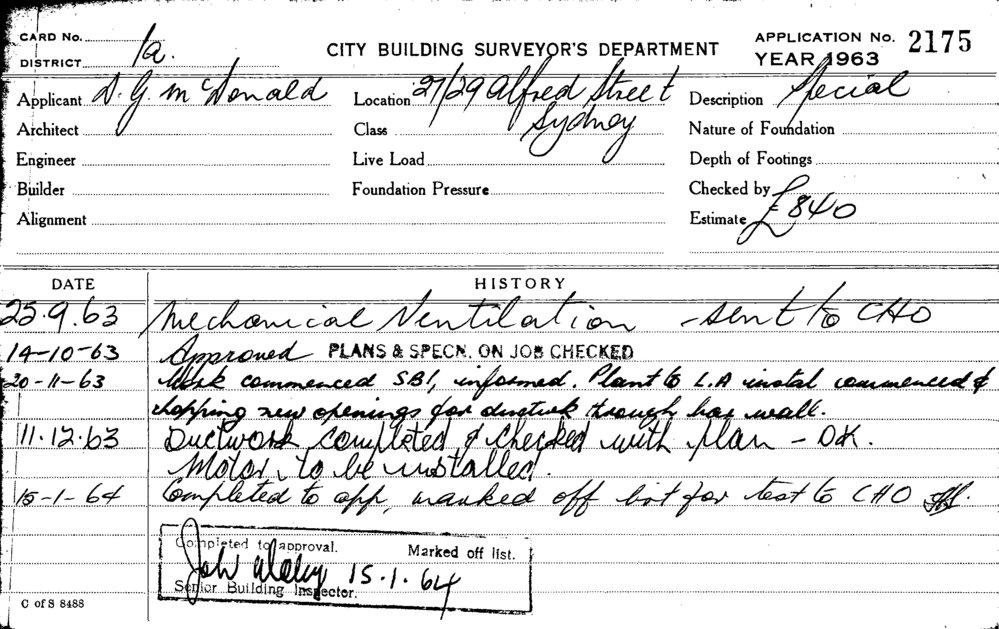 CARD No.
DISTRICT 1a.
CITY BUILDING SURVEYOR'S DEPARTMENT
APPLICATION No. 2175
YEAR 1963
Applicant D. G. McDonald Location 27/29 Alfred Street Description Special
Architect Class Sydney Nature of Foundation
Engineer Live Load Depth of Footings
Builder Foundation Pressure Checked by
Alignment Estimate £840
DATE HISTORY
25.9.63 Mechanical Ventilation - sent to CHO
14-10-63 Approved PLANS & SPECN. ON JOB CHECKED
20-11-63 Work commenced SBI, informed. Plant to L.A instal commenced &
chopping new openings for through wall.
11.12.63 Ductwork completed & checked with plan - OK.
Motor to be installed.
15-1-64 Completed to app, marked off list for test to CHO
Completed to approval. Marked off list.
15.1.64
Senior Building Inspector.
C of S 8488